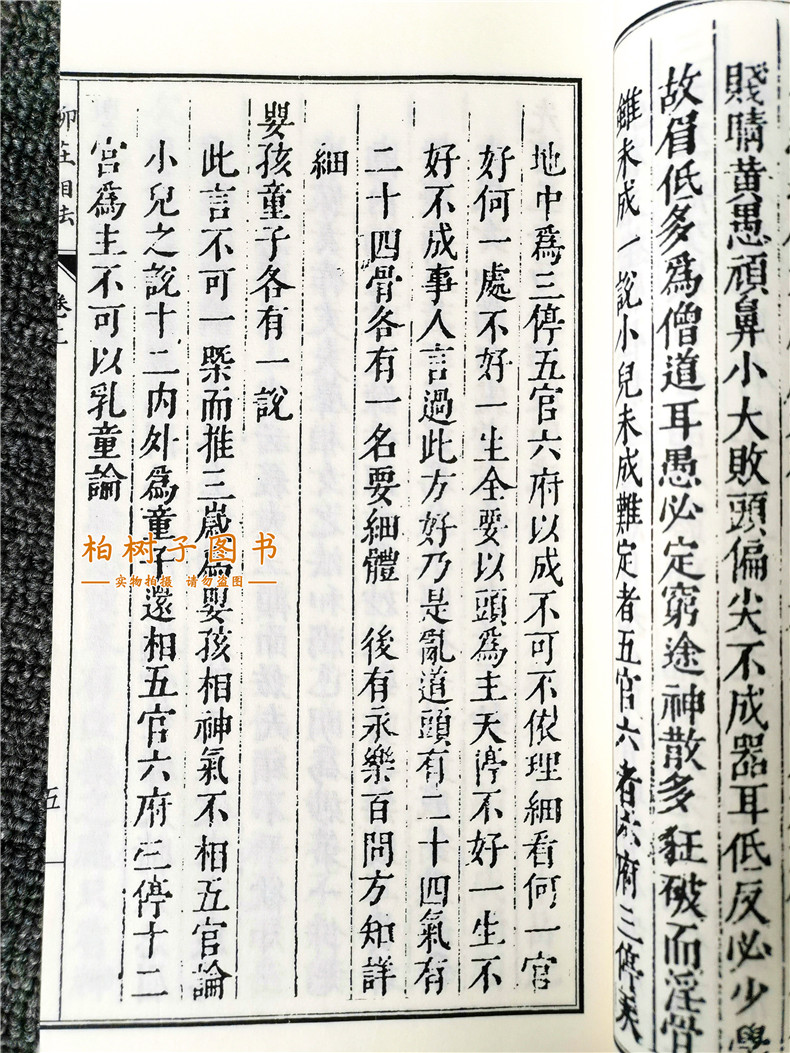 賤睛黃愚頑鼻小大敗頭偏尖不成器耳低反必少學
故眉低多為僧道耳愚必定窮途神散多狂破而淫骨
雖未成一說小兒未成難定者五官六府三停矣
地中為三停五官六府以成不可不依理細看何一官
好何一處不好一生全要以頭為主天停不好一生不
好不成事人言過此方好乃是亂道頭有二十四氣有
二十四骨各有一名要細體 後有永樂百問方知詳
細
嬰孩童子各有一說
此言不可一槩而推三歲為嬰孩相神氣不相五官論
小兒之說十二內外為童子還相五官六府三停十二
宮為主不可以乳童論
柳莊相法
卷上
五
柏树子图书
实物拍摄 请勿盗图